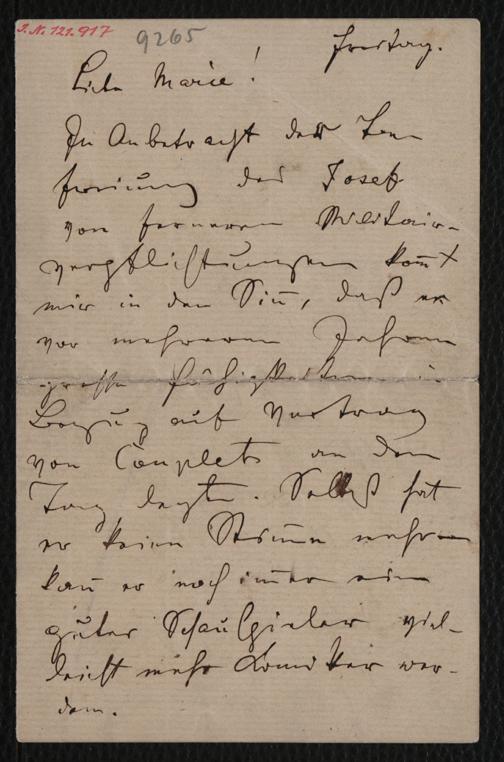 J.N. 121.917
9265
Freitag.
Liebe Marie!
In Anbetracht der Be-
freiung des Josef
von ferneren Militair-
verpflichtungen kom̅t
mir in den Sin̅, daß er
vor mehreren Jahren
große Fähigkeiten in
Bezug auf Vortrag
von Couplets an den
Tag legte. Selbst hat
er keine Stim̅e mehr
kan̅ er noch im̅er ein
guter Schauspieler viel-
leicht mehr Komiker wer-
den.